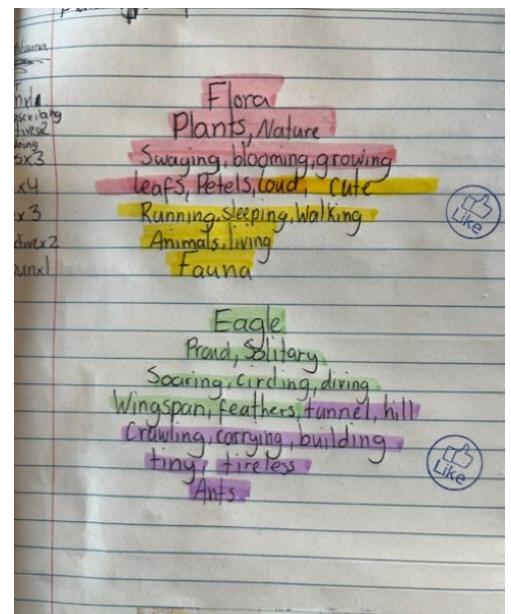 Name
x3
x4
x3
Flora
Plants, Nature
Swaying, blooming, growing
leafs, Petels, loud, cute
Running, sleeping, Walking
Animals, living
Fauna
Like
Eagle
Proud, Solitary
Soaring, circling, diving
Wingspan, feathers, tunnel, hill
Crawling, carrying, building
tiny, tireless
Ants
Like